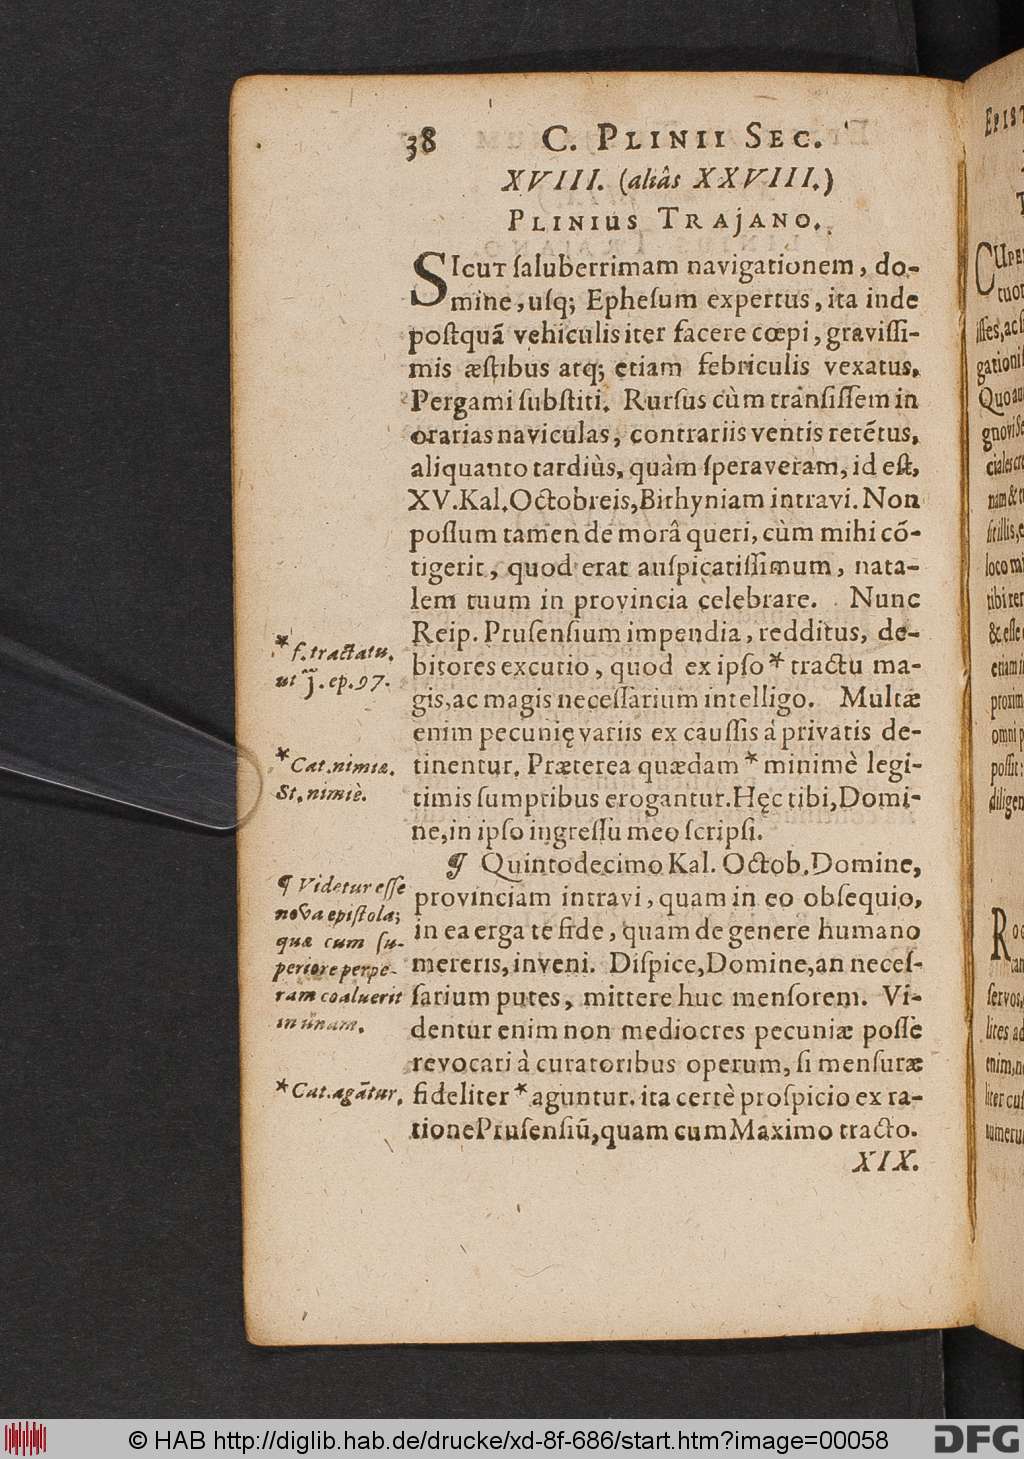 38 C. PLINII SEC.
XVIII. (aliâs XXVIII.)
PLINIUS TRAJANO.
SICUT ſaluberrimam navigationem, do-
mine, uſq; Epheſum expertus, ita inde
poſtquã vehiculis iter facere cœpi, graviſſi-
mis æſtibus atq; etiam febriculis vexatus,
Pergami ſubſtiti. Rurſus cùm tranſiſſem in
orarias naviculas, contrariis ventis retẽtus,
aliquanto tardiùs, quàm ſperaveram, id eſt,
XV. Kal. Octobreis, Bithyniam intravi. Non
poſſum tamen de morâ queri, cùm mihi cõ-
tigerit, quod erat auſpicatiſſimum, nata-
lem tuum in provincia celebrare. Nunc
Reip. Pruſenſium impendia, redditus, de-
bitores excutio, quod ex ipſo * tractu ma-
gis, ac magis neceſſarium intelligo. Multæ
enim pecunię variis ex cauſſis á privatis de-
tinentur. Præterea quædam * minimè legi-
timis ſumptibus erogantur. Hęc tibi, Domi-
ne, in ipſo ingreſſu meo ſcripſi.
¶ Quintodecimo Kal. Octob. Domine,
provinciam intravi, quam in eo obſequio,
in ea erga te fide, quam de genere humano
mereris, inveni. Diſpice, Domine, an neceſ-
ſarium putes, mittere huc menſorem. Vi-
dentur enim non mediocres pecuniæ poſſe
revocari à curatoribus operum, ſi menſuræ
fideliter * aguntur. ita certè proſpicio ex ra-
tione Pruſenſiũ, quam cum Maximo tracto.
XIX.
* f. tractatu.
ut j. ep. 97.
* Cat. nimia.
St. nimiè.
¶ Videtur eſſe
nova epiſtola;
quæ cum ſu-
periore perpe-
ram coaluerit
in unam.
* Cat. agãtur.
© HAB http://diglib.hab.de/drucke/xd-8f-686/start.htm?image=00058
DFG